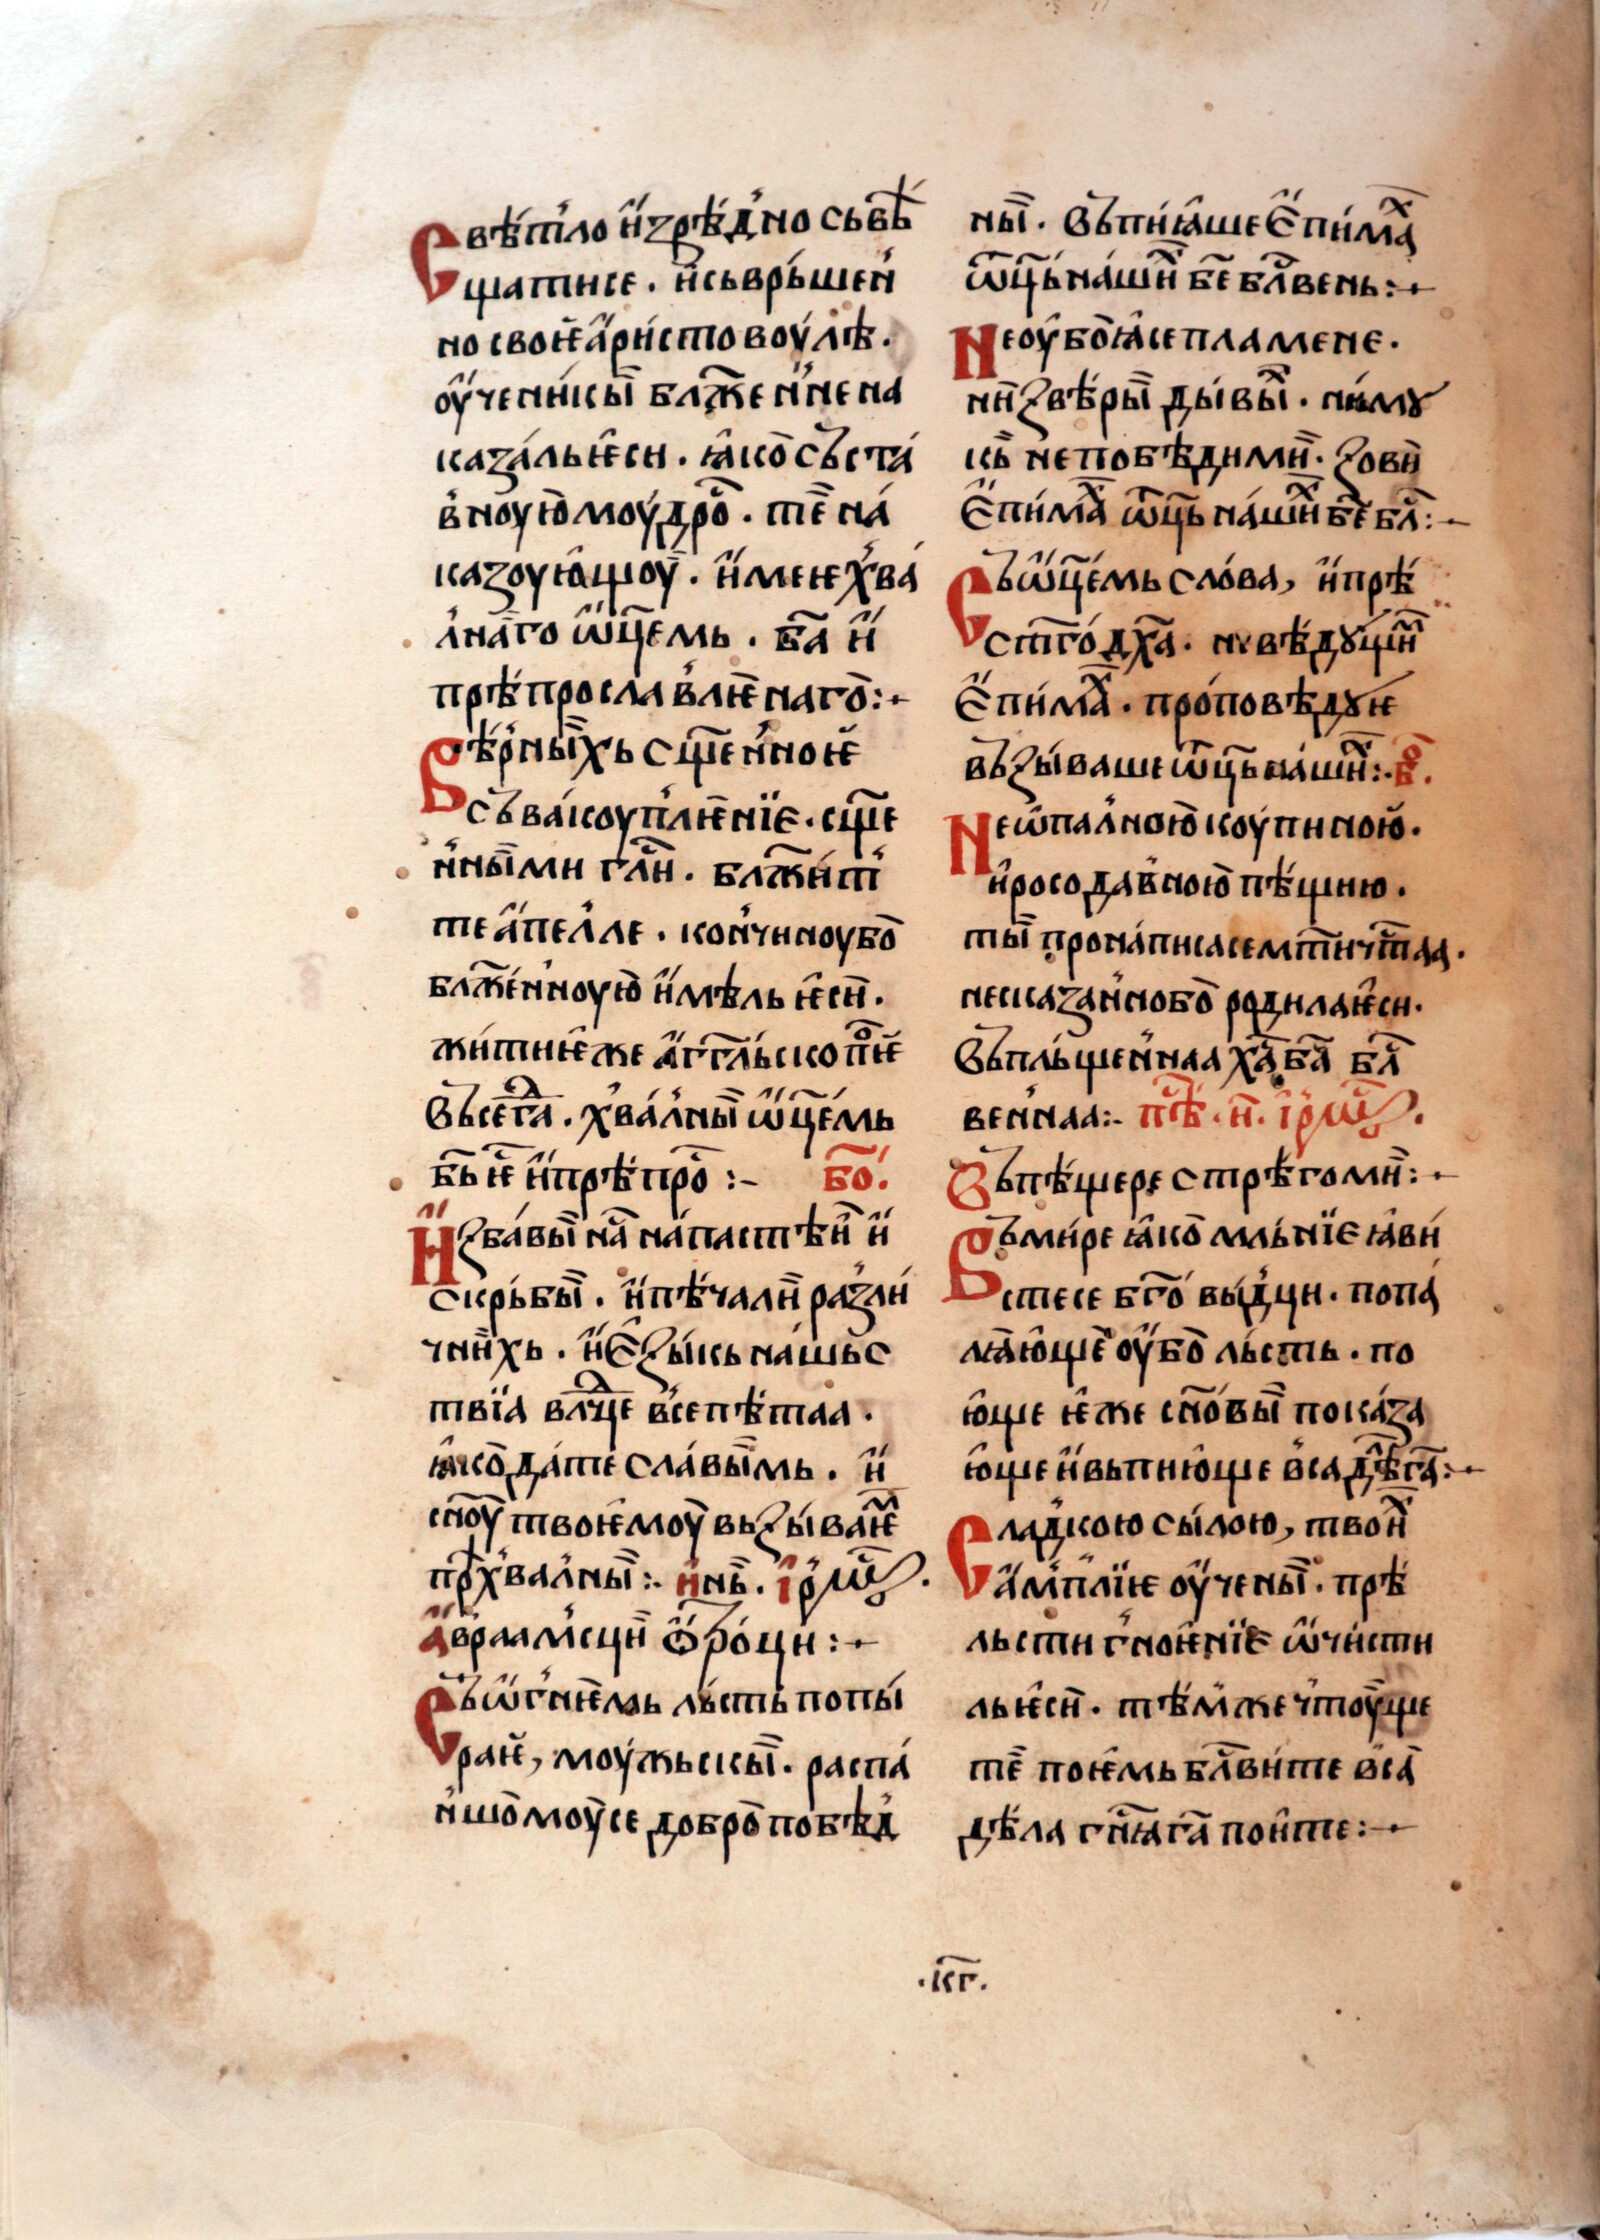 Свѣтло и҆зрѣдно сьвѣ
щатисе. и҆сьврьшен
но своѥа҆ристовоулѣ.
оу҆ченикы блж҃еннена
казальѥси. ꙗкосъста
вноуюмоудро. те на
казоующоу. и҆меѥхва
лнаго ѿц҃емь. ба҃ и҆
прѣпрославлѥнаго:~
Вѣрныихь сщ҃енноѥ
съвакоуплѥнїе. сщ҃е
нными гл҃и. блж҃ит
теа҆пелле. кончиноубо
блж҃енноую и҆мѣльѥси.
житиѥже а҆гг҃льскопоѥ
въсегда. хвалны ѿц҃емь
бь҃ѥ и҆прѣпро:~ бо҃.
И҆збавы на напастѣи и҆
скрьбы. и҆пѣчали разли
чнихь. и҆єзыкь нашьс
твїа влц҃е всепѣтаа.
ꙗкодате славымь. и҆
сн҃оу твоѥмоу вьзываѥ
прхвалны:~ инь. і҆рмѡс.
А҆враамсци ѡ҆троци:~
Съѡ҆гнѥмь льсть попы
раѥ, моужьскы. распа
ншомоусе добропобѣд
ны. въпиꙗше є҆пимах
ѿц҃ьнаши бе҃ бл҃вень:~
Неоубоꙗсе пламене.
ни звѣры дывы. ни му
кь непобѣдими. зови
Є҆пимах ѿц҃ь наши бе҃ бл҃:~
Съѿц҃емь слова, и҆прѣ
ст҃го дх҃а. невѣдущи
є҆пимах. проповѣдуѥ
въ зываше ѿц҃ь наши:~ бо҃.
Неѡпалною коупиною.
и҆росодавною пѣщию.
ты пронаписасемт҃ичт҃аа.
несказаннобо родилаѥси.
въпльщеннаа ха҃ ба҃ бл҃
веннаа:~ пѣ. и҃. і҆рмѡс.
Въпѣщере с трѣгоми:~
Въмире ꙗко мльнїе ꙗви
стесе бг҃овыдци. попа
лꙗюще оубо льсть. по
юще ѥже сн҃овы показа
юще и҆вьпиюще вса дѣга:~
Сладкою сылою, твои
а҆мплїѥ оу҆чены. прѣ
льсти гноѥнїе ѡ҆чисти
льѥси. тѣмже чтоуще
те поѥмь бл҃вите вса
дѣла гн҃ꙗ га҃ поите:~
.кг҃.